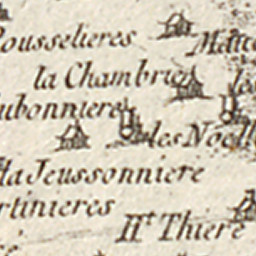 Rousselieres
la Chambrie
les
ubonniere
les Noell
la Jeussonniere
rtinieres
Ht Thiere